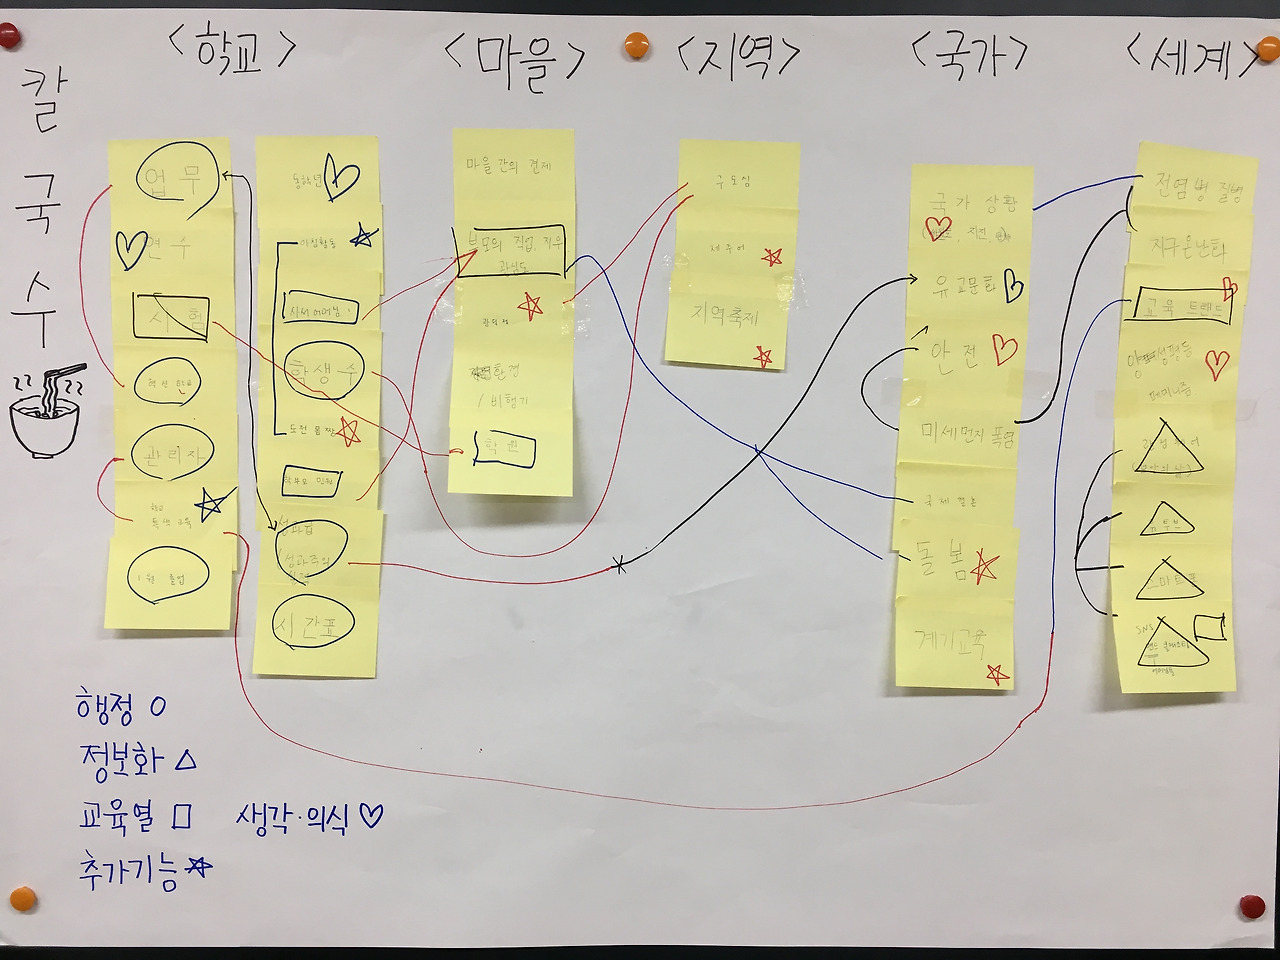 칼국수
<학교>
업무
연수
시험
혁신 학교
관리자
학교
특색 교육
1월 졸업
동학년
아침활동
사서 어머님
학생수
도전 몸짱
학부모 민원
성과급
성과주의
시간표
<마을>
마을 간의 경제
부모의 직업, 지위
관심도
/ 비행기
학원
<지역>
구도심
제주어
지역축제
<국가>
국가 상황
유교문화
안전
미세먼지 폭염
국제 결혼
돌봄
계기교육
<세계>
전염병 질병
지구온난화
교육 트렌드
양성평등
페미니즘
유튜브
스마트폰
SNS
행정 ○
정보화 △
교육열 □
생각·의식 ♡
추가기능 ☆